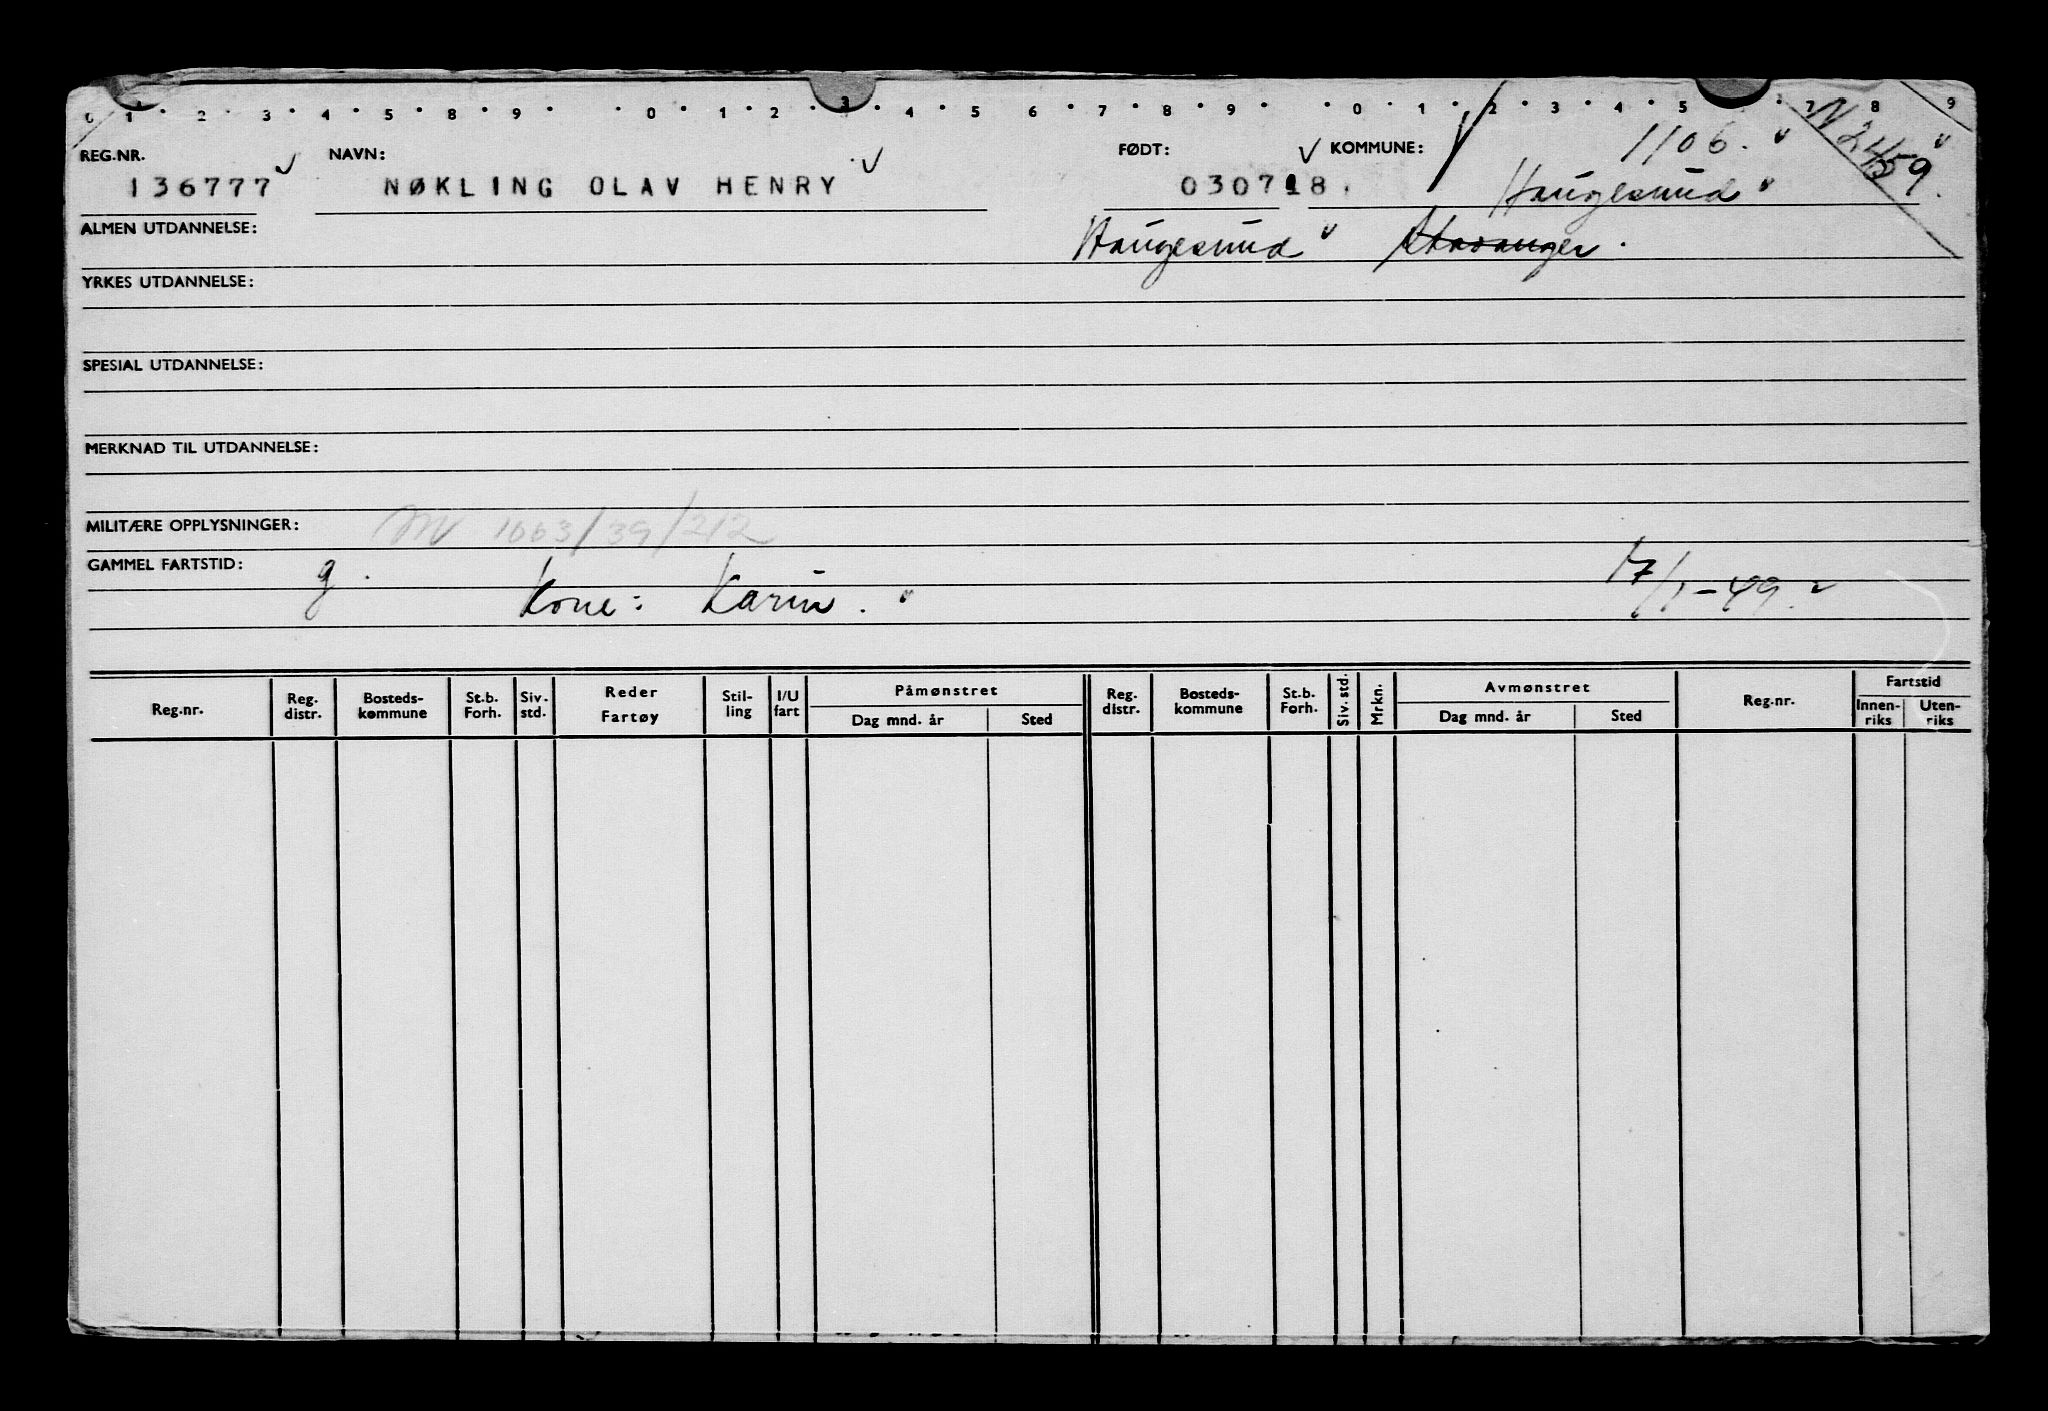 0 1 2 3 4 5 8 9 0 1 2 3 4 5 6 7 8 9 0 1 2 3 4 5 7 8 9
1106. N 2459.
REG.NR. NAVN: FØDT: KOMMUNE:
136777 NØKLING OLAV HENRY 030718. Haugesund
ALMEN UTDANNELSE: Haugesund Stavanger.
YRKES UTDANNELSE:
SPESIAL UTDANNELSE:
MERKNAD TIL UTDANNELSE:
MILITÆRE OPPLYSNINGER: M 1003/39/212
GAMMEL FARTSTID: g. Kone: Karin. 17/1-49.
Reg.nr. Reg. distr. Bosteds-kommune St.b. Forh. Siv. std. Reder Fartøy Stil-ling I/U fart Påmønstret Reg. distr. Bosteds-kommune St.b. Forh. Siv. std. Mrkn. Avmønstret Reg.nr. Fartstid
Dag mnd. år Sted Dag mnd. år Sted Innen-riks Uten-riks